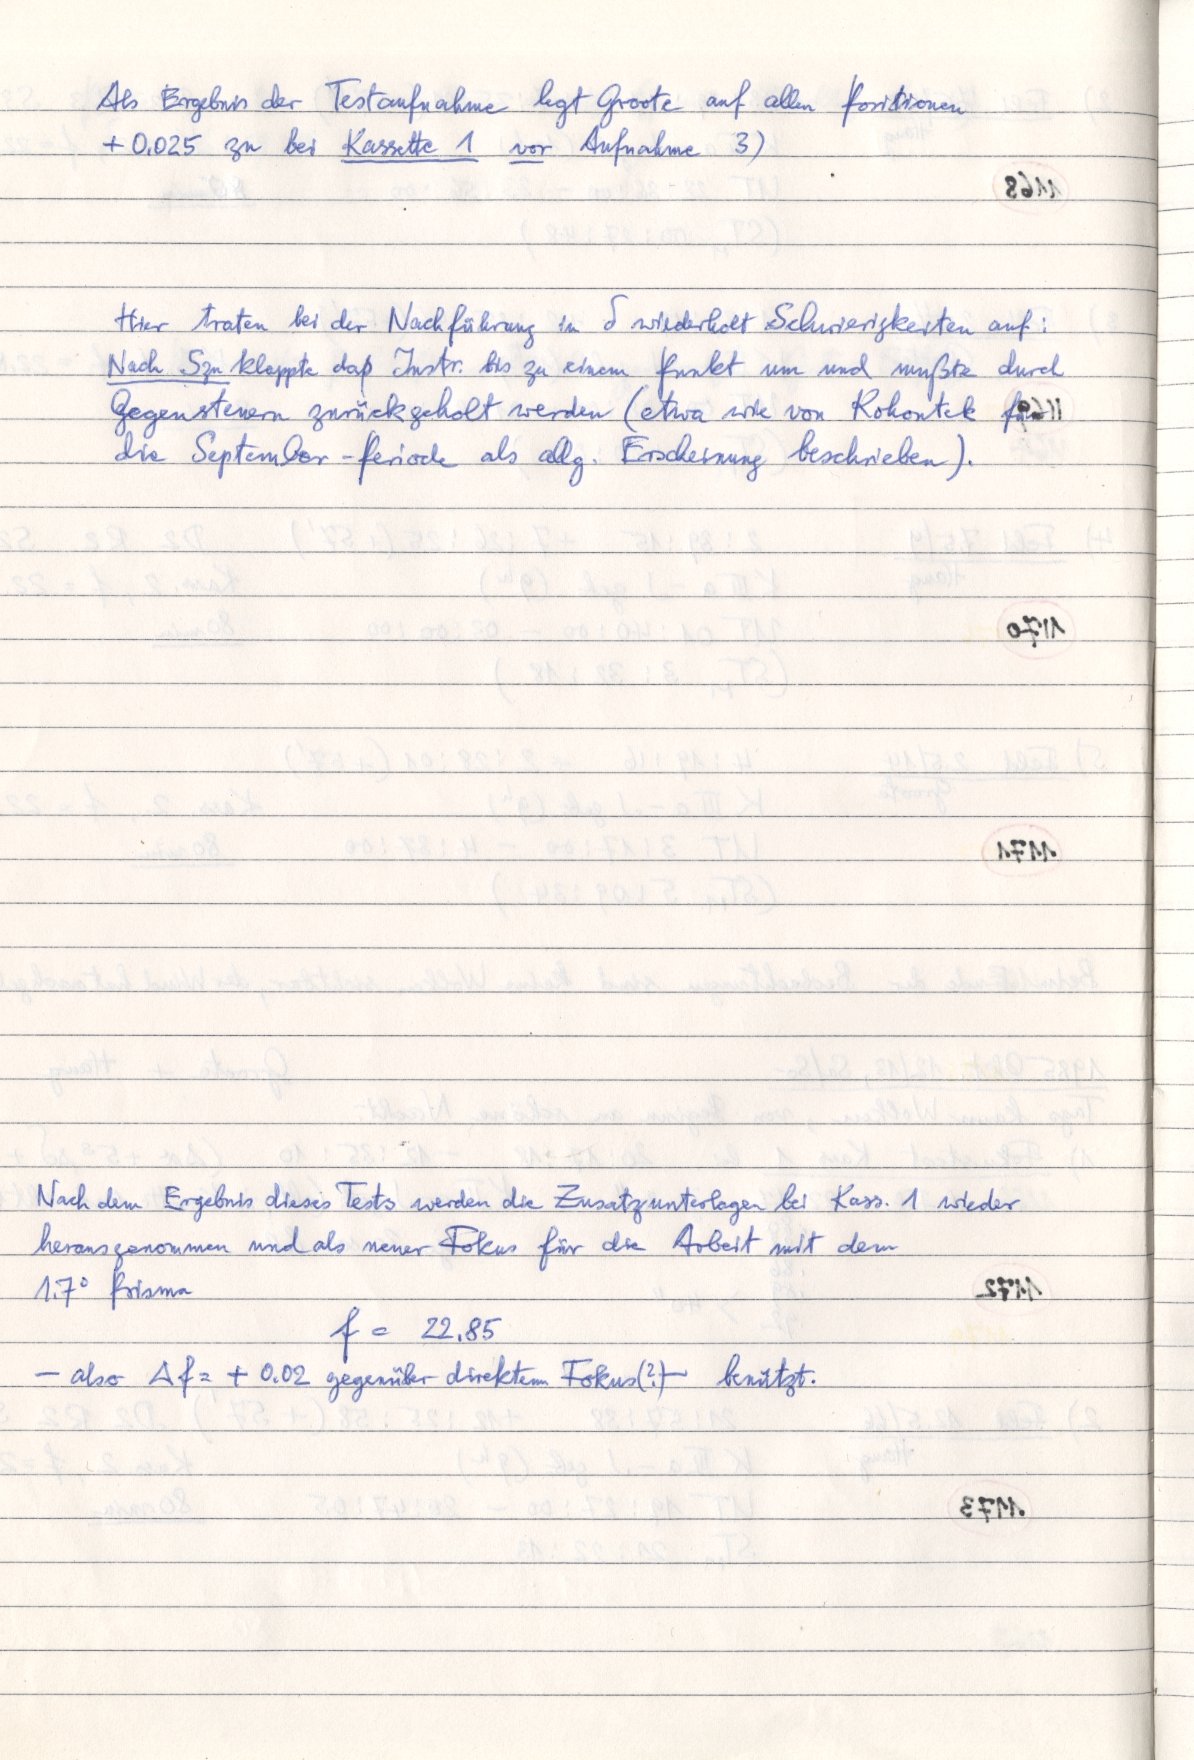 Als Ergebnis der Testaufnahme legt Groote auf allen Positionen
+0.025 zu bei Kassette 1 vor Aufnahme 3)
1168
Hier traten bei der Nachführung in δ wiederholt Schwierigkeiten auf:
Nach Szn kloppte das Instr. bis zu einem Punkt um und mußte durch
Gegensteuern zurückgeholt werden (etwa wie von Kohoutek für
1169
die September-Periode als allg. Erscheinung beschrieben).
1170
1171
Nach dem Ergebnis dieses Tests werden die Zusatzunterlagen bei Kass. 1 wieder
herausgenommen und als neuer Fokus für die Arbeit mit dem
1.7° Prisma
1172
f = 22.85
— also Δf = + 0.02 gegenüber direktem Fokus(?) — benützt.
1173